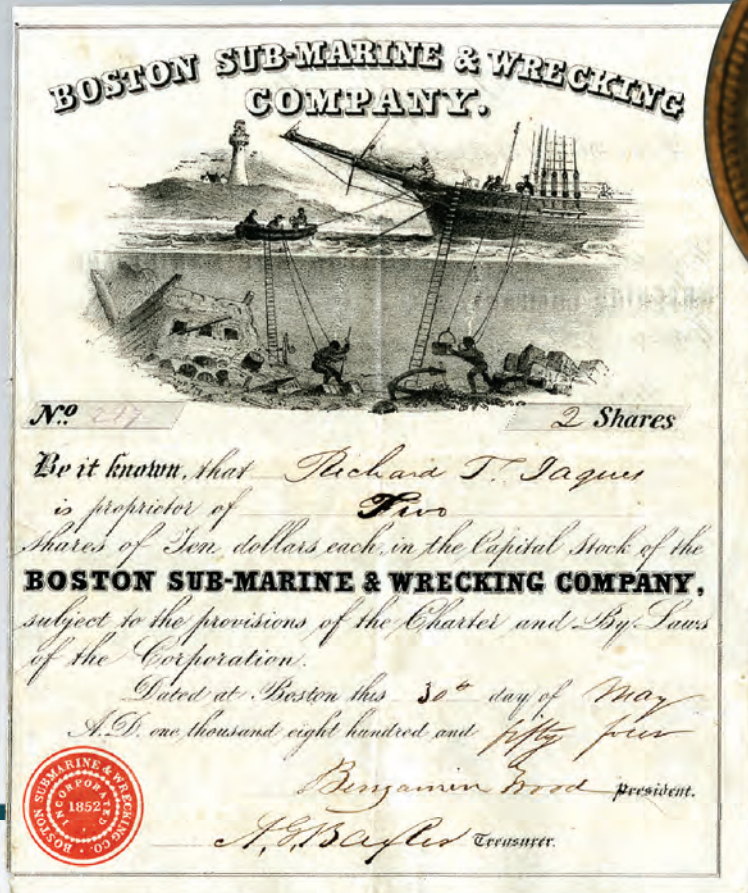 BOSTON SUB-MARINE & WRECKING
COMPANY.
No. 247
2 Shares
Be it known, that Richard T. Jaques
is proprietor of Two
shares of Ten dollars each, in the Capital Stock of the
BOSTON SUB-MARINE & WRECKING COMPANY,
subject to the provisions of the Charter and By-Laws
of the Corporation.
Dated at Boston this 30th day of May
A.D. one thousand eight hundred and fifty four
Benjamin Wood President.
Treasurer.
BOSTON SUBMARINE & WRECKING CO.
INCORPORATED
1852